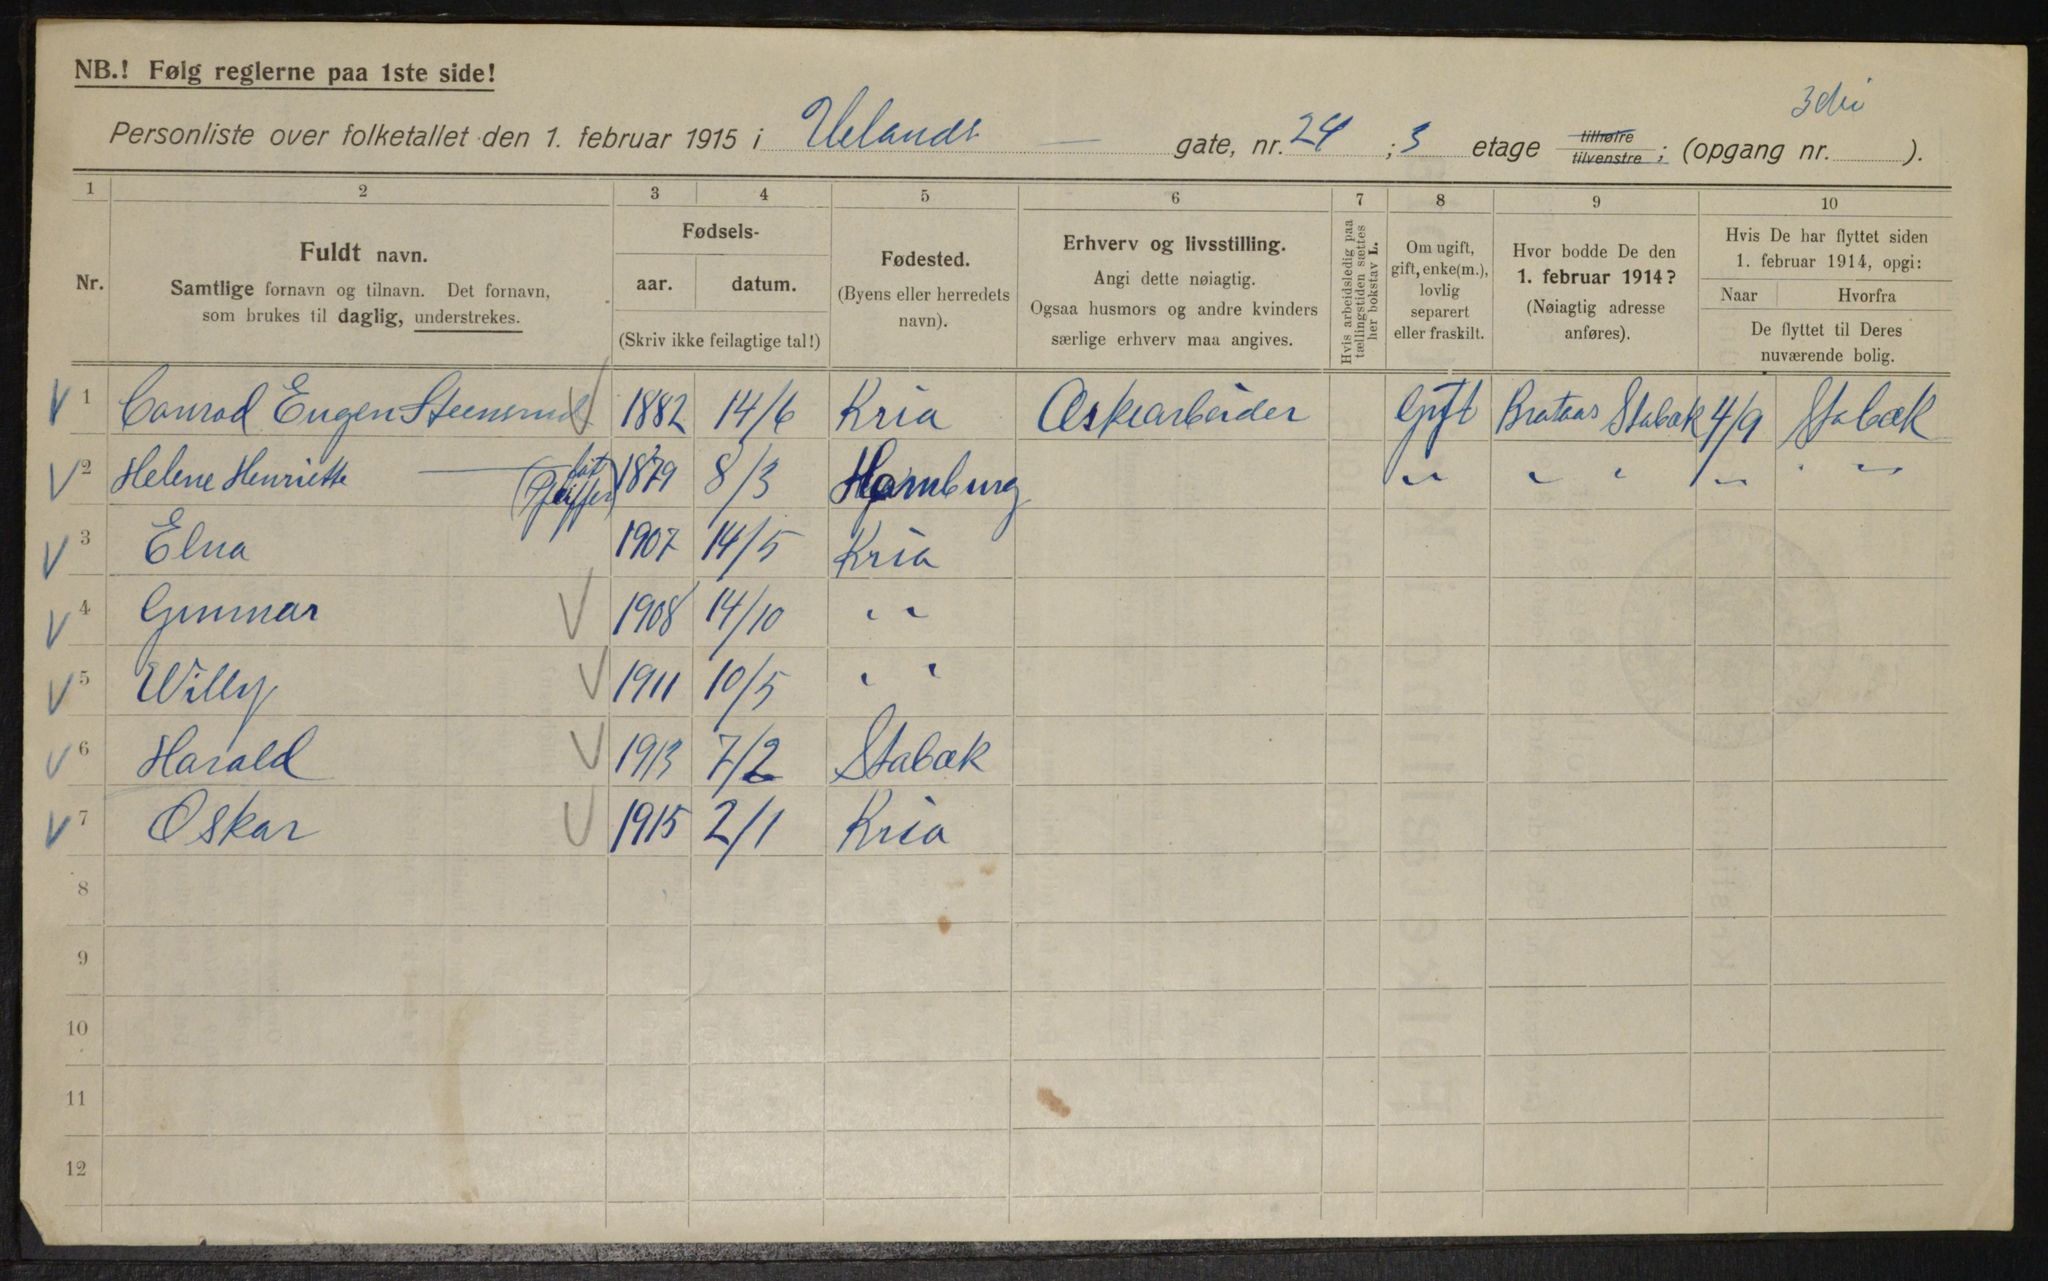 NB.! Følg reglerne paa 1ste side!
3die
Personliste over folketallet den 1. februar 1915 i Uelands gate, nr. 24 ; 3 etage tilhøire tilvenstre ; (opgang nr. ).
1 2 3 4 5 6 7 8 9 10
Nr.
Fuldt navn.
Samtlige fornavn og tilnavn. Det fornavn,
som brukes til daglig, understrekes.
Fødsels-
aar. datum.
(Skriv ikke feilagtige tal!)
Fødested.
(Byens eller herredets
navn).
Erhverv og livsstilling.
Angi dette nøiagtig.
Ogsaa husmors og andre kvinders
særlige erhverv maa angives.
Hvis arbeidsledig paa
tællingstiden sættes
her bokstav L.
Om ugift,
gift, enke(m.),
lovlig
separert
eller fraskilt.
Hvor bodde De den
1. februar 1914?
(Nøiagtig adresse
anføres).
Hvis De har flyttet siden
1. februar 1914, opgi:
Naar Hvorfra
De flyttet til Deres
nuværende bolig.
V 1 Conrad Eugen Steensrud V 1882 14/6 Kria Æskearbeider Gift Brataas Stabæk 4/9 Stabæk
V 2 Helene Henriette — (Pfeiffer) 1879 8/3 Hamburg " " " " " " "
V 3 Elna 1907 14/5 Kria
V 4 Gunnar V 1908 14/10 " "
V 5 Willy V 1911 10/5 " "
V 6 Harald V 1913 7/2 Stabæk
V 7 Oskar V 1915 2/1 Kria
8
9
10
11
12